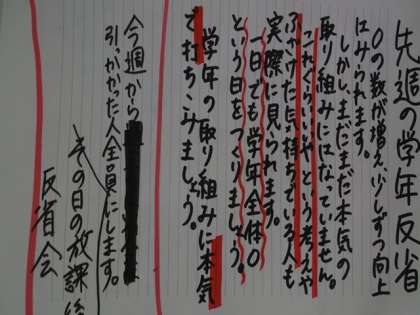 先週の学年反省
〇の数が増え、少しずつ向上
はみられます。
しかし、まだまだ本気の
取り組みにはなっていません。
これくらいいや という考えや
ふやけた気持ちでいる人も
実際に見られます。
一日でも学年全体〇
という日をつくりましょう。
学年の取り組みに本気
で打ちこみましょう。
今週から
引っかかった人全員にします。
その日の放課後
反省会